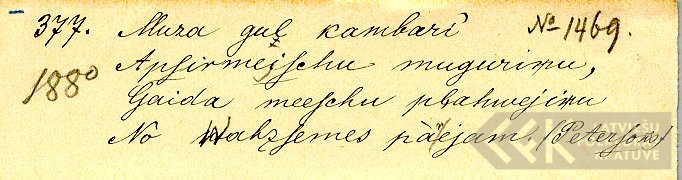 377. Muza guļ kambarī № 1469.
1880 Apsirmejschu mugurinu,
Gaida meeschu plahwejinu
No Wahzsemes pārejam. (Petersons)
LATVIEŠU
FOLKLORAS
KRĀTUVE